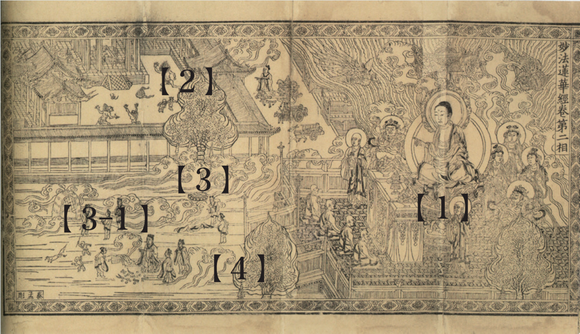 妙法蓮華經卷第二相
【2】
【3】
【3-1】
【1】
【4】